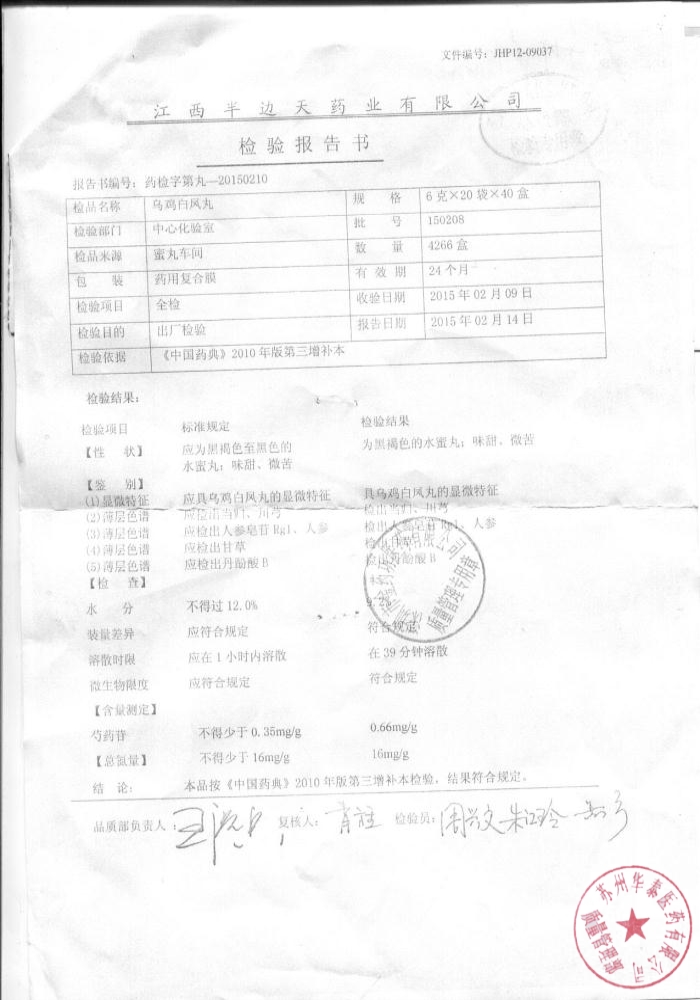 文件编号：JHP12-09037
江西半边天药业有限公司
检验报告书
报告书编号：药检字第丸—20150210
检品名称 乌鸡白凤丸 规格 6克×20袋×40盒
检验部门 中心化验室 批号 150208
检品来源 蜜丸车间 数量 4266盒
包装 药用复合膜 有效期 24个月
检验项目 全检 收验日期 2015年02月09日
检验目的 出厂检验 报告日期 2015年02月14日
检验依据 《中国药典》2010年版第三增补本
检验结果：
检验项目 标准规定 检验结果
【性状】 应为黑褐色至黑色的 为黑褐色的水蜜丸；味甜、微苦
水蜜丸；味甜、微苦
【鉴别】
(1)显微特征 应具乌鸡白凤丸的显微特征 具乌鸡白凤丸的显微特征
(2)薄层色谱 应检出当归、川芎 检出当归、川芎
(3)薄层色谱 应检出人参皂苷Rg1、人参 检出人参皂苷Rg1、人参
(4)薄层色谱 应检出甘草 检出甘草
(5)薄层色谱 应检出丹酚酸B 检出丹酚酸B
【检查】
水分 不得过12.0%
装量差异 应符合规定 符合规定
溶散时限 应在1小时内溶散 在39分钟溶散
微生物限度 应符合规定 符合规定
【含量测定】
芍药苷 不得少于0.35mg/g 0.66mg/g
【总氮量】 不得少于16mg/g 16mg/g
结论： 本品按《中国药典》2010年版第三增补本检验，结果符合规定。
品质部负责人： 复核人： 检验员：
质量管理专用章
苏州华泰医药有限公司
质量管理部